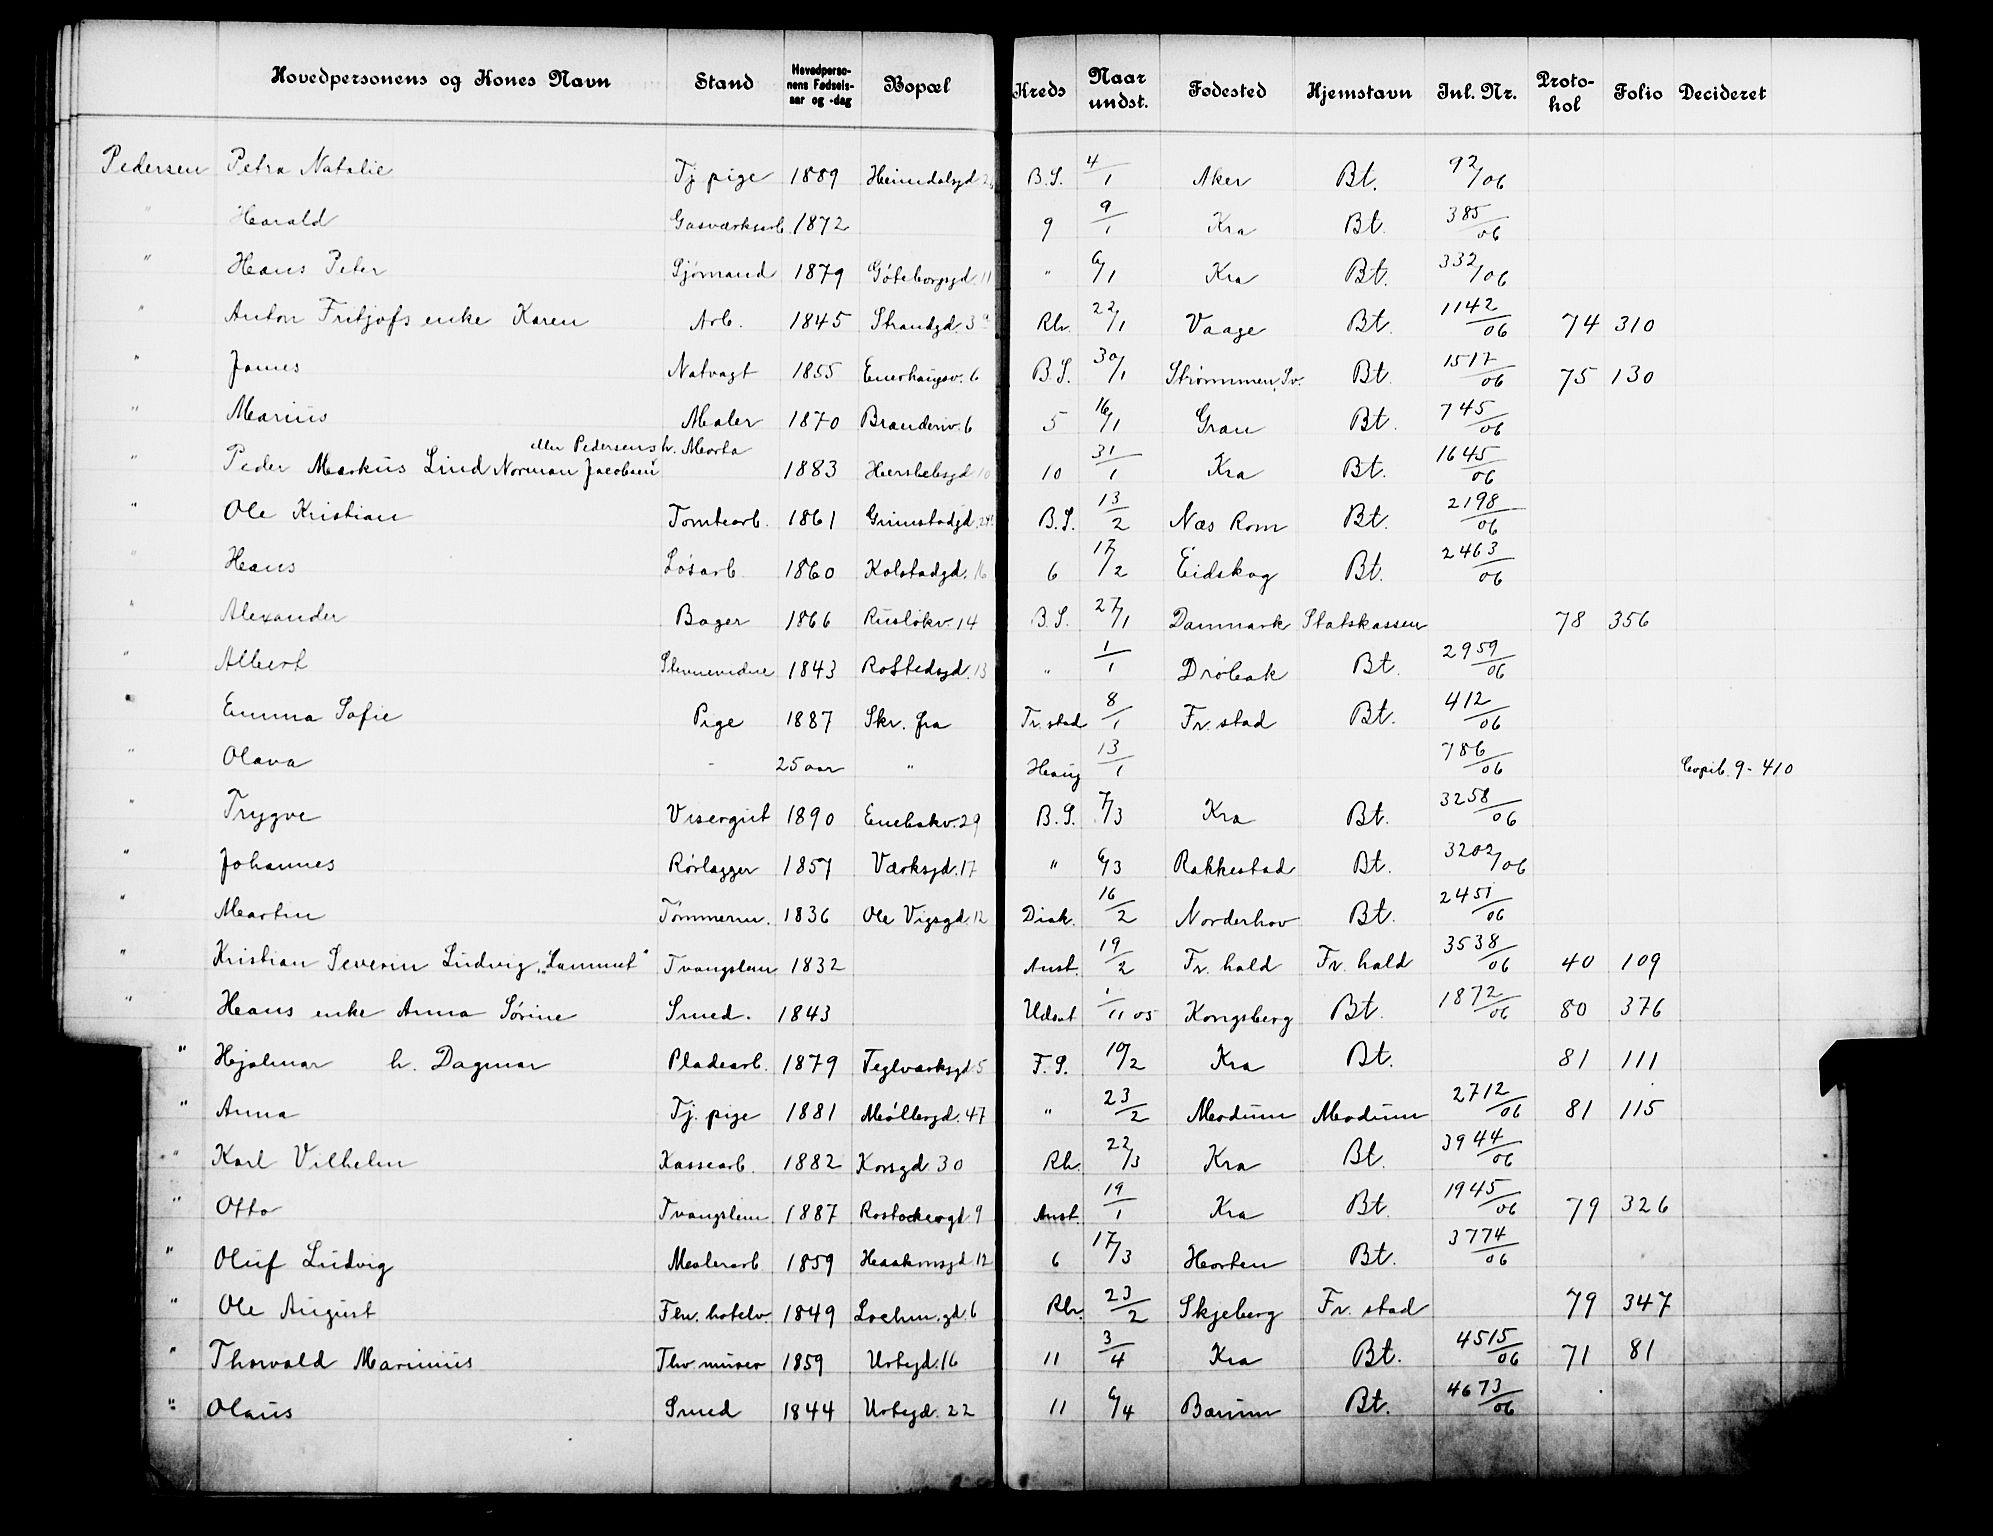 Hovedpersonens og Kones Navn Stand Hovedpersonens Fødselsaar og -dag Bopæl Kreds Naar undst. Fødested Hjemstavn Inl. Nr. Protokol Folio Decideret
Pedersen Petra Natalie Tj. pige 1889 Heimdalsgd B.S. 4/1 Aker Bt. 92/06
" Harald Gasværksarb. 1872 9 9/1 Kra Bt. 385/06
" Hans Peter Sjömand 1879 Göteborgsgd. 11 " 6/1 Kra Bt. 332/06
" Anton Fritjofs enke Karen Arb. 1845 Strandgd. 3a Rh. 22/1 Vaage Bt. 1142/06 74 310
" James Natvagt 1855 Enerhaugsv. 6 B.S. 30/1 Strømmen, Sv. Bt. 1517/06 75 130
" Marius Maler 1870 Branderiv. 6 5 16/1 Gran Bt. 745/06
eller Pedersens h. Marta
" Peder Markus Lind Norman Jacobsen 1883 Herslebsgd 10 10 31/1 Kra Bt. 1645/06
" Ole Kristian Tomtearb. 1861 Grimstadgd. B.S. 13/2 Næs Rom Bt. 2198/06
" Hans Løsarb. 1860 Kolstadgd. 16 6 17/2 Eidskog Bt. 2463/06
" Alexander Bager 1866 Rusløkv. 14 B.S. 27/1 Danmark Statskassen 78 356
" Albert Stevnevidne 1843 Rostedsgd. 13 " 1/1 Drøbak Bt. 2959/06
" Emma Sofie Pige 1887 Skr. fra Fr. stad 8/1 Fr. stad Bt. 412/06
" Olava - 25 aar " Haug 13/1 786/06 Copib. 9-410
" Trygve Visergut 1890 Enebakv. 29 B.S. 7/3 Kra Bt. 3258/06
" Johannes Rørlægger 1857 Værksgd. 17 " 6/3 Rakkestad Bt. 3202/06
" Martin Tømmerm. 1836 Ole Vigsgd. 12 Diak. 16/2 Norderhov Bt. 2451/06
" Kristian Severin Ludvig, "Lammet" Tvangslem 1832 Anst. 19/2 Fr. hald Fr. hald 3538/06 40 109
" Hans enke Anna Sørine Smed. 1843 Udsat 1/11 05 Kongsberg Bt. 1872/06 80 376
" Hjalmar h. Dagmar Pladearb. 1879 Teglværksgd. 5 F.S. 10/2 Kra Bt. 81 111
" Anna Tj. pige 1881 Møllergd. 47 " 23/2 Modum Modum 2712/06 81 115
" Karl Vilhelm Kassearb. 1882 Korsgd. 30 Rh. 22/3 Kra Bt. 3944/06
" Otto Tvangslem 1887 Rostockergd. 9 Anst. 19/1 Kra Bt. 1945/06 79 326
" Oluf Ludvig Malerarb 1859 Haakonsgd 12 6 17/3 Horten Bt. 3774/06
" Ole August Fhv. hotelv. 1849 Lochm.gd. 6 Rh. 23/2 Skjeberg Fr. stad 79 347
" Thorvald Marinius Fhv. murer 1859 Urtegd. 16 11 3/4 Kra Bt. 4515/06 71 81
" Olaus Smed 1844 Urtegd. 22 11 6/4 Bærum Bt. 4673/06